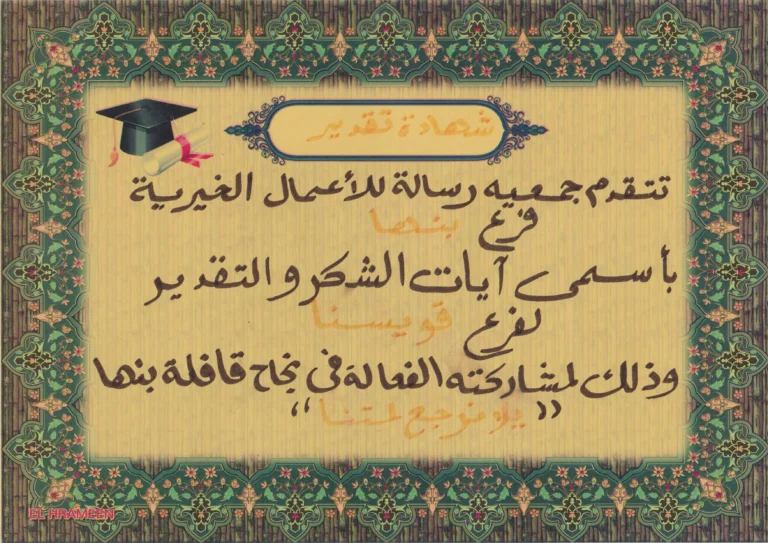 شهادة تقدير
تتقدم جمعيه رسالة للأعمال الخيرية
فرع بنها
بأسمى آيات الشكر والتقدير
لفرع قويسنا
وذلك لمشاركته الفعالة فى نجاح قافلة بنها
"يلا نرجع لمتنا"
EL-HRAMEEN